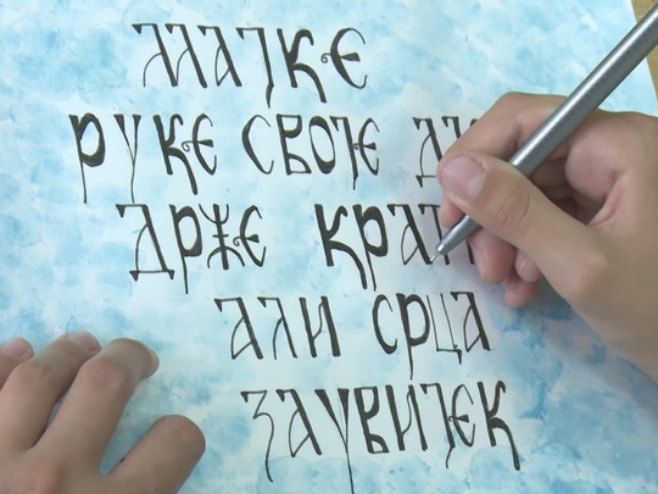 МАЈКЕ
РУКЕ СВОЈЕ
ДРЖЕ
АЛИ СРЦА
ЗАУВИЈЕК